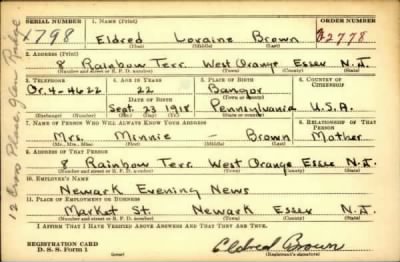 SERIAL NUMBER 1. NAME (Print) ORDER NUMBER
1798 Eldred Loraine Brown 2778
(First) (Middle) (Last)
2. ADDRESS (Print)
8 Rainbow Terr. West Orange Essex N.J.
(Number and street or R. F. D. number) (Town) (County) (State)
3. TELEPHONE 4. AGE IN YEARS 5. PLACE OF BIRTH 6. COUNTRY OF CITIZENSHIP
Or. 4-4622 22 Bangor
DATE OF BIRTH (Town or county)
Sept. 23 1918 Pennsylvania U.S.A.
(Exchange) (Number) (Mo.) (Day) (Yr.) (State or country)
7. NAME OF PERSON WHO WILL ALWAYS KNOW YOUR ADDRESS 8. RELATIONSHIP OF THAT PERSON
Mrs. Minnie - Brown Mother
(Mr., Mrs., Miss) (First) (Middle) (Last)
9. ADDRESS OF THAT PERSON
8 Rainbow Terr. West Orange Essex N.J.
(Number and street or R. F. D. number) (Town) (County) (State)
10. EMPLOYER'S NAME
Newark Evening News
11. PLACE OF EMPLOYMENT OR BUSINESS
Market St. Newark Essex N.J.
(Number and street or R. F. D. number) (Town) (County) (State)
I AFFIRM THAT I HAVE VERIFIED ABOVE ANSWERS AND THAT THEY ARE TRUE.
REGISTRATION CARD
D. S. S. Form 1 (over) Eldred Brown
(Registrant's signature)
12 Place, Glen Ridge